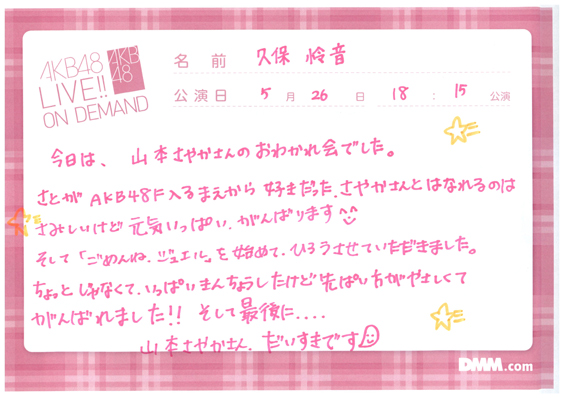 AKB48
LIVE!!
ON DEMAND
AKB
48
名 前 久保 怜音
公演日 5 月 26 日 18 : 15 公演
今日は、山本さやかさんのおわかれ会でした。
さとがAKB48に入るまえから好きだった、さやかさんとはなれるのは
さみしいけど元気いっぱい、がんばります
そして「ごめんね、ジュエル」を始めて、ひろうさせていただきました。
ちょっとじゃなくて、いっぱいきんちょうしたけど先ぱい方がやさしくて
がんばれました!! そして最後に....
山本さやかさん、だいすきです
DMM.com